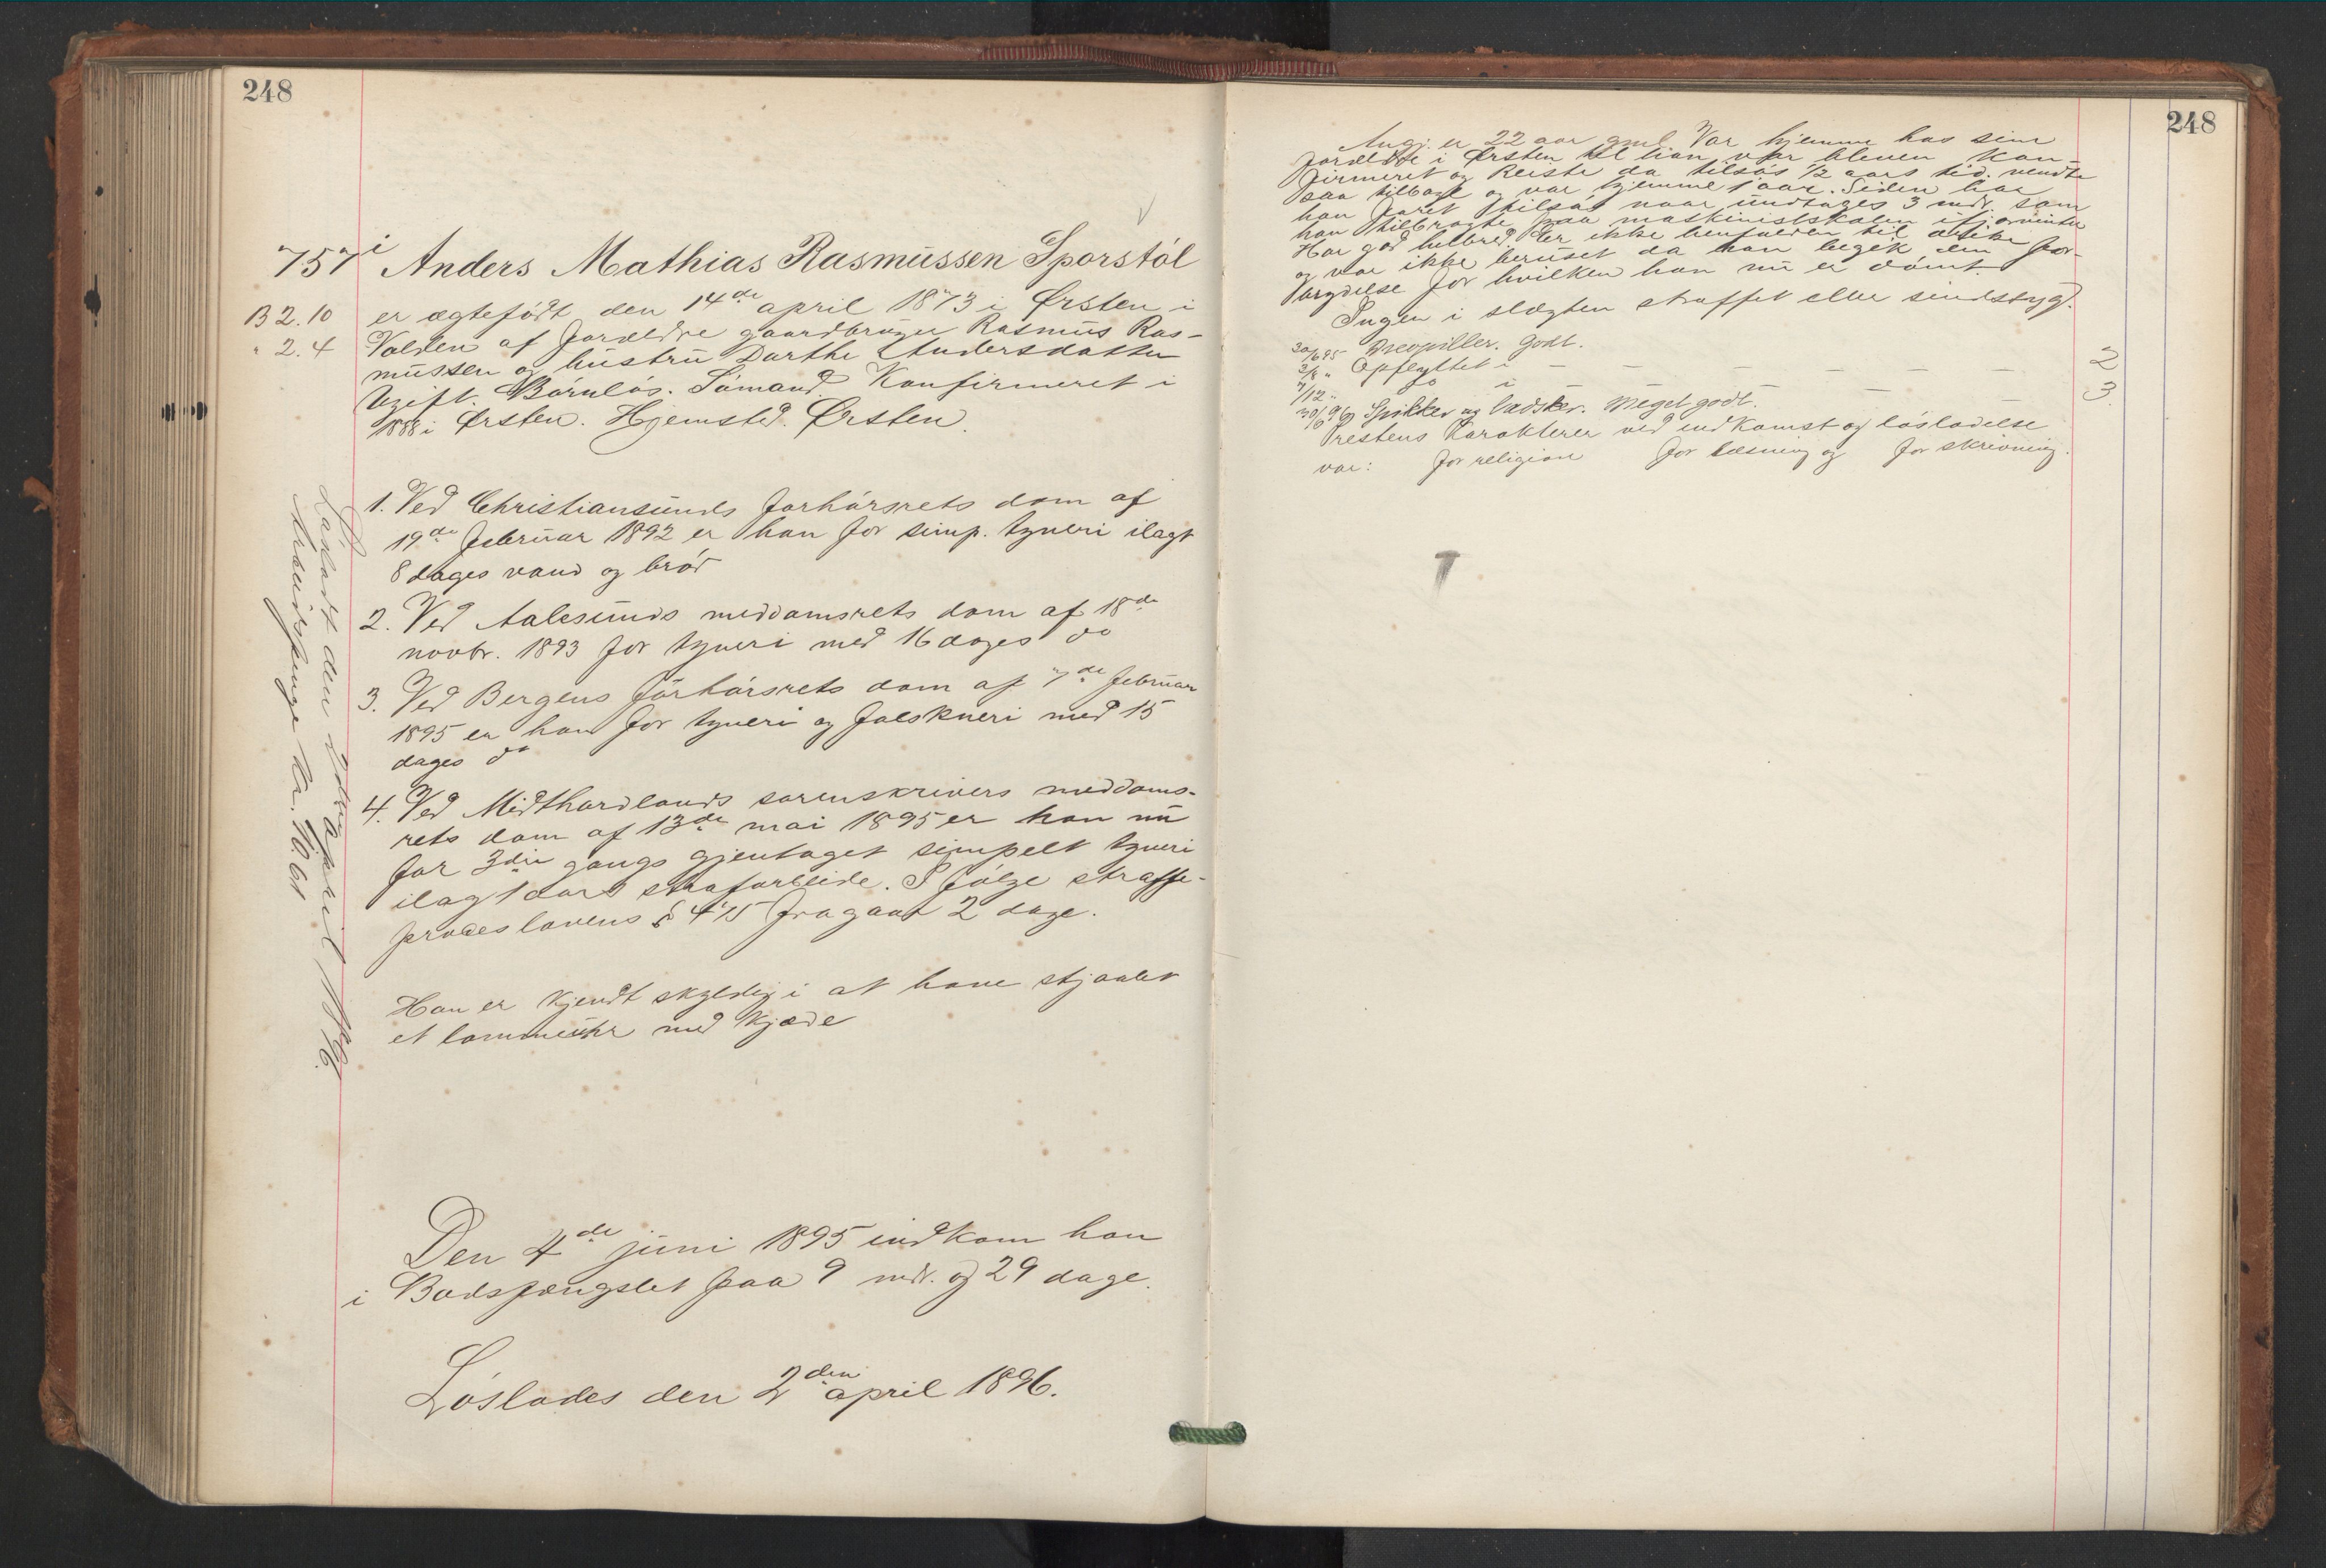 248
757 i Anders Mathias Rasmussen Sporstøl
B 2.10 er ægtefødt den 14de april 1873 i Ørsten i
" 2.4 Volden af forældre gaardbruger Rasmus Ras-
mussen og hustru Darthe Andersdatter
Ugift. Børnløs. Sømand. Konfirmeret i
1888 i Ørsten. Hjemsted. Ørsten.
1. Ved Christiansunds forhørsrets dom af
19de februar 1892 er han for simp. tyveri ilagt
8 dages vand og brød
2. Ved Aalesunds meddomsrets dom af 18de
novbr. 1893 for tyveri med 16 dages do
3. Ved Bergens forhørsrets dom af 7de februar
1895 er han for tyveri og falskneri med 15
dages do
4. Ved Midthordlands sorenskrivers meddoms-
rets dom af 13de mai 1895 er han nu
for 3die gangs gjentaget simpelt tyveri
ilagt 1 aars strafarbeide. I følge straffe-
proceslovens § 475 fragaar 2 dage.
Han er kjendt skyldig i at have stjaalet
et lommeuhr med kjæde
Den 4de juni 1895 indkom han
i Bodsfængslet paa 9 mdr. og 29 dage.
Løslades den 2den april 1896.
Løsladt den 2den april 1896.
Arbeidspenge kr. 10.61
248
Angj. er 22 aar gml. Var hjemme hos sine
forældre i Ørsten til han var bleven kon-
firmeret og reiste da tilsøs 1/2 aars tid. vendte
saa tilbage og var hjemme 1 aar. Siden har
han faret tilsøs naar undtages 3 mdr. som
han tilbragte paa maskinistskolen ifjorvinter
Har god helbred. Er ikke henfalden til drik
og var ikke beruset da han begik den for-
brydelse for hvilken han nu er dømt.
Ingen i slægten straffet eller sindssyg.
30/6 95 Drevpiller. Godt.
Opflyttet i — — — — — — 2
7/12 " do i — — — — 3
Spikker og ladsker. Meget godt.
Prestens karakterer ved indkomst og løsladelse
var: for religion for læsning og for skrivning.
T